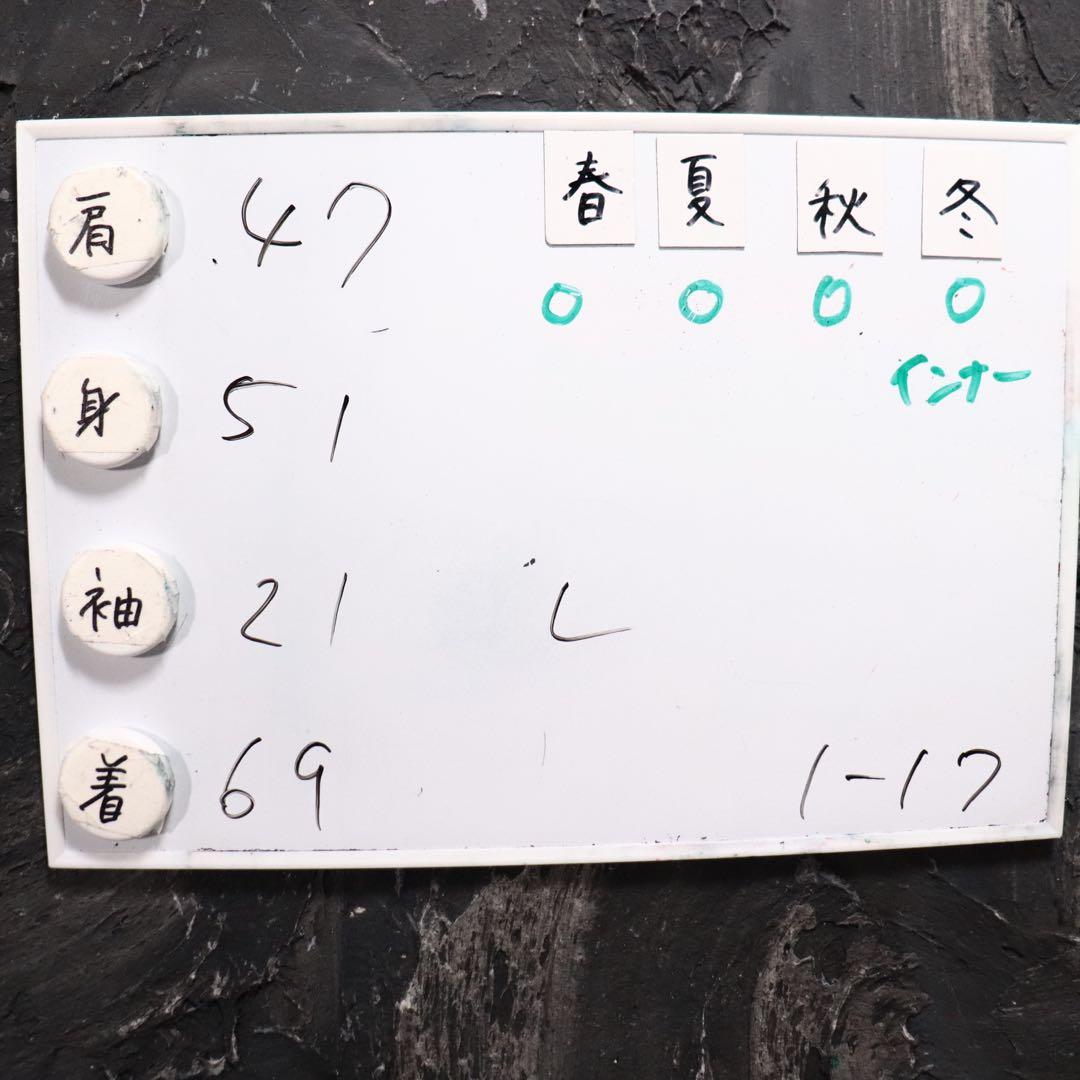 肩 47 春 夏 秋 冬
○ ○ ○ ○
インナー
身 51
袖 21 L
着 69 1-17